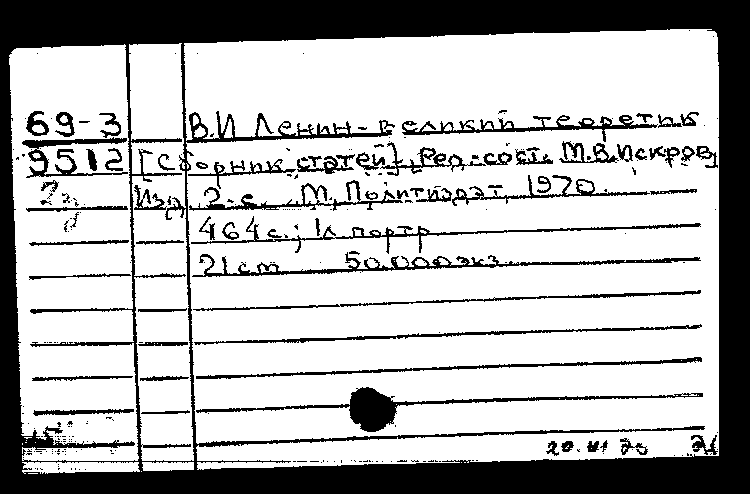 69-3 В.И Ленин-великий теоретик
9512 [Сборник статей]. Ред.-сост. М.В.Искров,
Изд 2-е. М, Политиздат, 1970.
464с.; 1л портр
21cm 50.000экз.